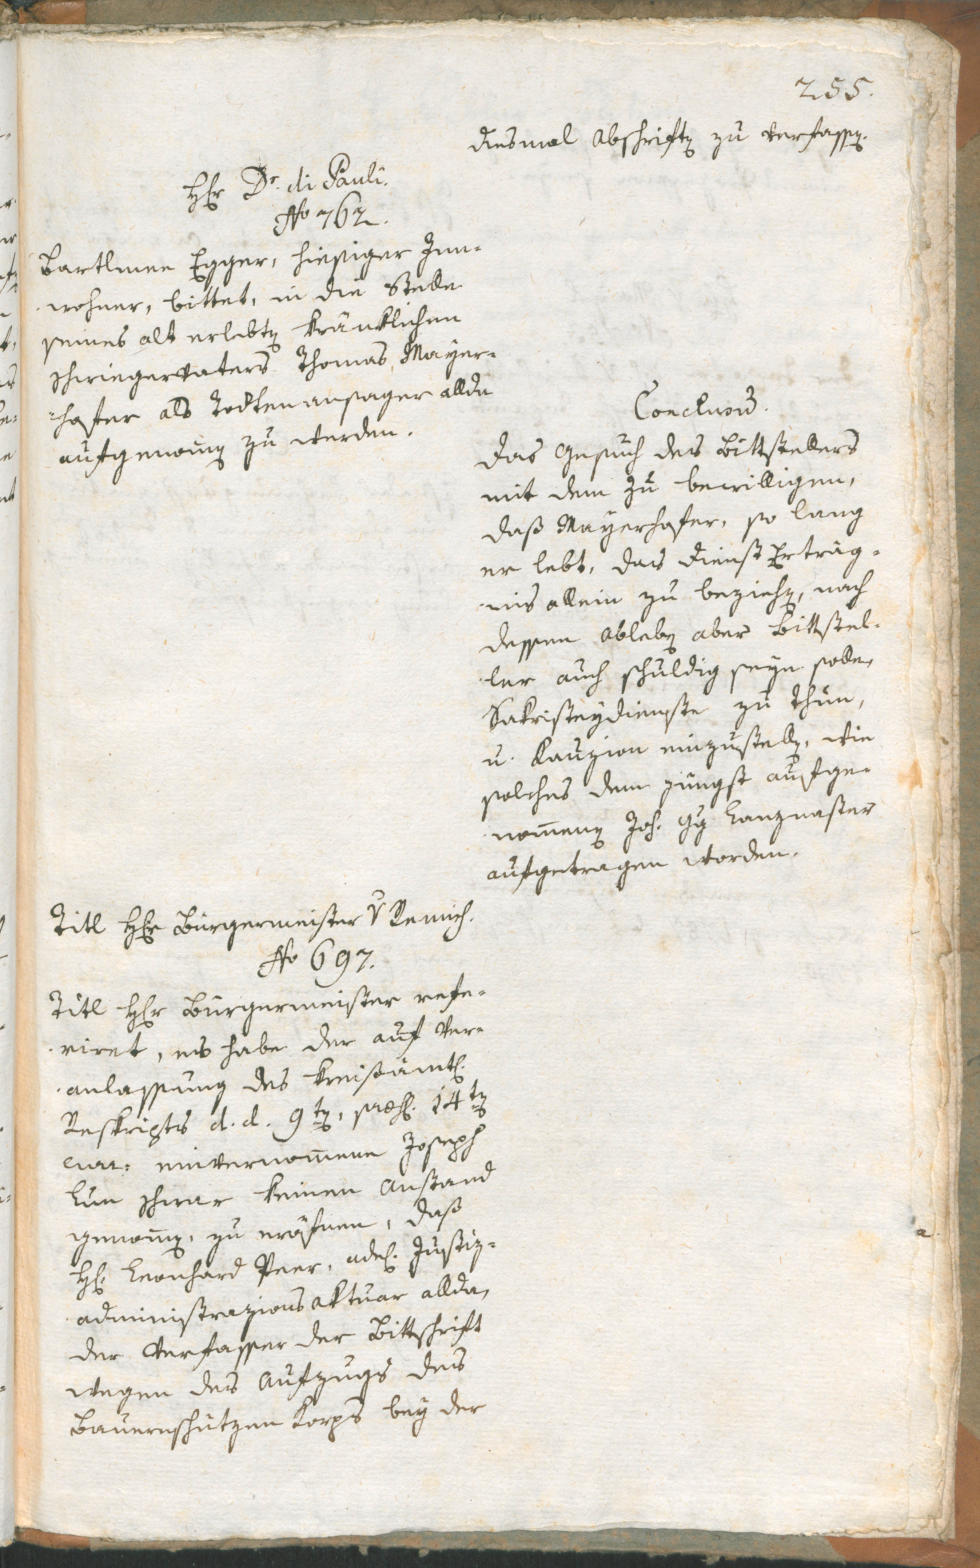 255.
diesmal Abschriften zu verfassen.
Hr Dr. di Pauli.
No 762.
Bartlmee Egger, hiesiger Inn-
wohner, bittet, in die Stelle
seines alt erlebten kränklichen
Schwiegervaters Thomas Mayer-
hofer als Todtenansager allda
aufgenommen zu werden.
Conclusum.
Das Gesuch des Bittstellers
mit dem zu bewilligen,
daß Mayerhofer, so lang
er lebt, das Dienst Erträg-
nis allein zu beziehen, nach
dessen Ableben aber Bittstel-
ler auch schuldig seyn solle,
Sakristeydienste zu thun,
u. Kauzion einzustellen, wie
solches dem jüngst aufge-
nommenen Joh. Gg Lanznaster
aufgetragen worden.
Titl Hr Bürgermeister v Remich.
No 697.
Titl Hr Bürgermeister refe-
riret, es habe der auf Ver-
anlassung des kreisämtl.
Reskripts d. d. 9ten, 14ten
cur. einvernommene Joseph
Lun zwar keinen Anstand
genommen, zu eröfnen, daß
H. Leonhard Peer, Justiz-
administrazionsaktuar allda,
der Verfasser der Bittschrift
wegen des Aufzugs des
Bauernschützen Korps bey der